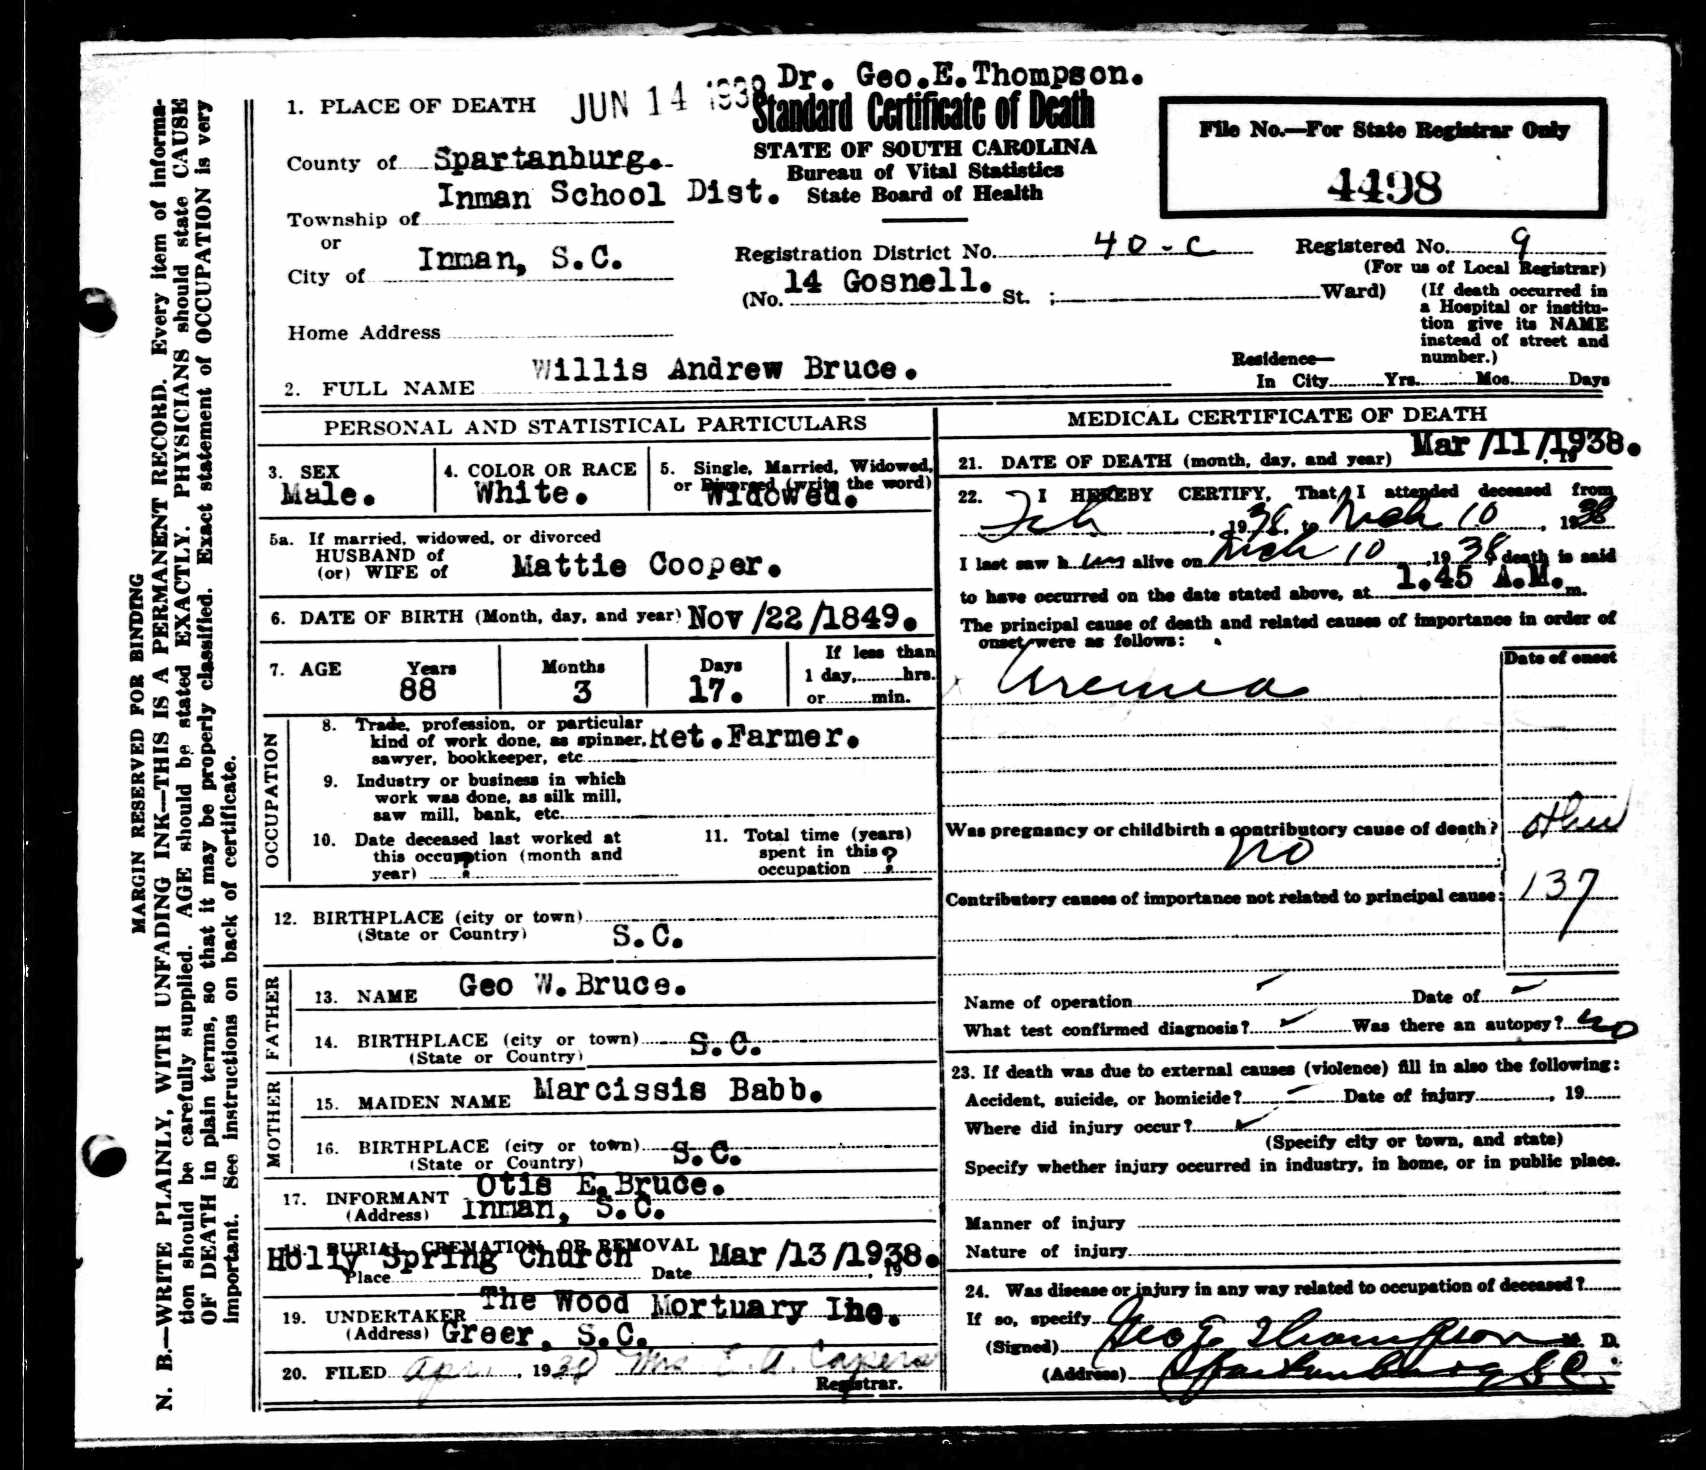 Dr. Geo.E.Thompson.
1. PLACE OF DEATH JUN 14 1938
Standard Certificate of Death
STATE OF SOUTH CAROLINA
Bureau of Vital Statistics
State Board of Health
File No.—For State Registrar Only
4498
County of Spartanburg.
Inman School Dist.
Township of
or
City of Inman, S.C.
Registration District No. 40-C
Registered No. 9
(For us of Local Registrar)
(No. 14 Gosnell. St. ; Ward)
(If death occurred in
a Hospital or institu-
tion give its NAME
instead of street and
number.)
Home Address
2. FULL NAME Willis Andrew Bruce.
Residence—
In City Yrs. Mos. Days
PERSONAL AND STATISTICAL PARTICULARS
3. SEX
Male.
4. COLOR OR RACE
White.
5. Single, Married, Widowed,
or Divorced (write the word)
Widowed.
5a. If married, widowed, or divorced
HUSBAND of
(or) WIFE of Mattie Cooper.
6. DATE OF BIRTH (Month, day, and year) Nov/22/1849.
7. AGE Years Months Days If less than
88 3 17. 1 day, hrs.
or min.
OCCUPATION
8. Trade, profession, or particular
kind of work done, as spinner, Ret.Farmer.
sawyer, bookkeeper, etc
9. Industry or business in which
work was done, as silk mill,
saw mill, bank, etc.
10. Date deceased last worked at
this occupation (month and
year) ?
11. Total time (years)
spent in this ?
occupation
12. BIRTHPLACE (city or town)
(State or Country) S.C.
FATHER
13. NAME Geo W.Bruce.
14. BIRTHPLACE (city or town) S.C.
(State or Country)
MOTHER
15. MAIDEN NAME Marcissis Babb.
16. BIRTHPLACE (city or town) S.C.
(State or Country)
17. INFORMANT Otis E.Bruce.
(Address) Inman, S.C.
18. BURIAL, CREMATION OR REMOVAL
Holly Spring Church Mar/13/1938.
Place Date , 19
19. UNDERTAKER The Wood Mortuary Inc.
(Address) Greer, S.C.
20. FILED Apr. , 19 Mrs E. A. Capers
Registrar.
MEDICAL CERTIFICATE OF DEATH
21. DATE OF DEATH (month, day, and year) Mar/11/1938.
, 19
22. I HEREBY CERTIFY, That I attended deceased from
Feb , 1938, to Mch 10 , 1938
I last saw him alive on Mch 10 , 1938, death is said
to have occurred on the date stated above, at 1.45 A.M. m.
The principal cause of death and related causes of importance in order of
onset were as follows:
Date of onset
Uremia
Was pregnancy or childbirth a contributory cause of death?
no
other
Contributory causes of importance not related to principal cause:
137
Name of operation Date of
What test confirmed diagnosis? Was there an autopsy? no
23. If death was due to external causes (violence) fill in also the following:
Accident, suicide, or homicide? Date of injury , 19
Where did injury occur?
(Specify city or town, and state)
Specify whether injury occurred in industry, in home, or in public place.
Manner of injury
Nature of injury
24. Was disease or injury in any way related to occupation of deceased?
If so, specify
(Signed) Geo E Thompson M. D.
(Address) Spartanburg S.C.
MARGIN RESERVED FOR BINDING
N. B.—WRITE PLAINLY, WITH UNFADING INK—THIS IS A PERMANENT RECORD. Every item of informa-
tion should be carefully supplied. AGE should be stated EXACTLY. PHYSICIANS should state CAUSE
OF DEATH in plain terms, so that it may be properly classified. Exact statement of OCCUPATION is very
important. See instructions on back of certificate.